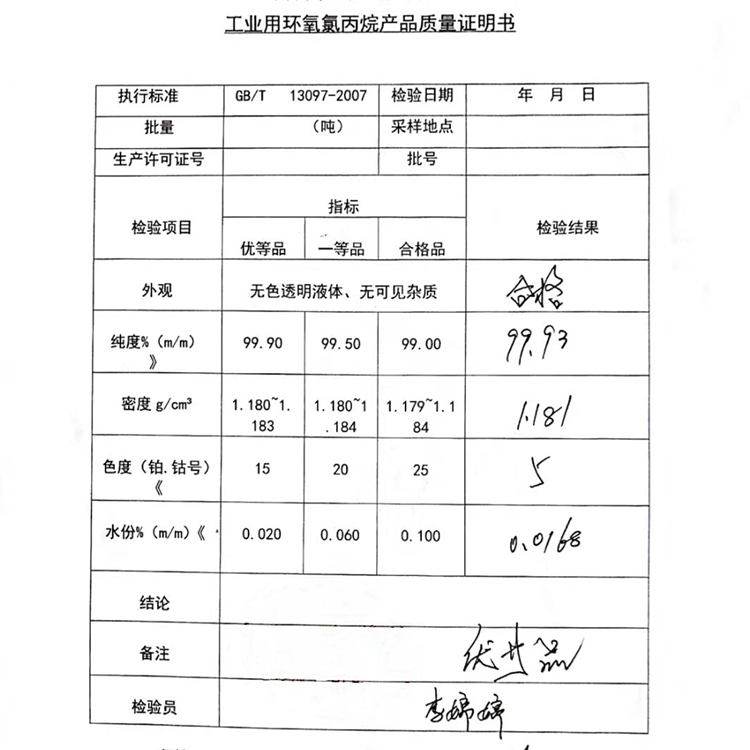 工业用环氧氯丙烷产品质量证明书
执行标准 GB/T 13097-2007 检验日期 年 月 日
批量 （吨） 采样地点
生产许可证号 批号
检验项目 指标 检验结果
优等品 一等品 合格品
外观 无色透明液体、无可见杂质 合格
纯度%（m/m）》 99.90 99.50 99.00 99.93
密度g/cm³ 1.180~1.183 1.180~1.184 1.179~1.184 1.181
色度（铂.钴号）《 15 20 25 5
水份%（m/m）《 0.020 0.060 0.100 0.0168
结论
备注 优等品
检验员 李婷婷